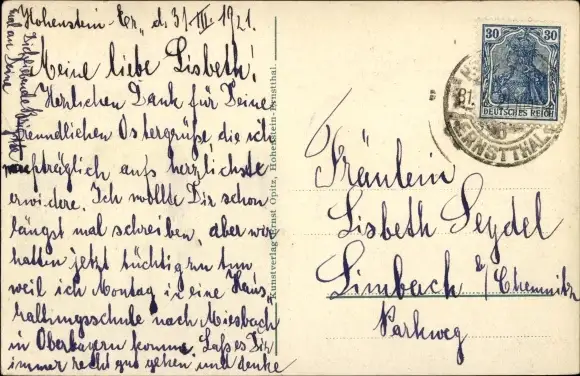 Hohenstein-Er., d. 31.III.1921.
Meine liebe Lisbeth!
Herzlichen Dank für Deine
freundlichen Ostergrüße die ich
nachträglich aufs herzlichste
erwidere. Ich wollte Dir schon
längst mal schreiben, aber wir
hatten jetzt tüchtig zu tun
weil ich Montag in eine Haus
haltungsschule nach Miesbach
in Oberbayern komme. Laß es Dir
immer recht gut gehen und denke
mal an Deine
Dich liebende
Kunstverlag Ernst Opitz, Hohenstein-Ernstthal.
30 30
DEUTSCHES REICH
ERNSTTHAL
Fräulein
Lisbeth Seydel
Limbach b/Chemnitz
Parkweg